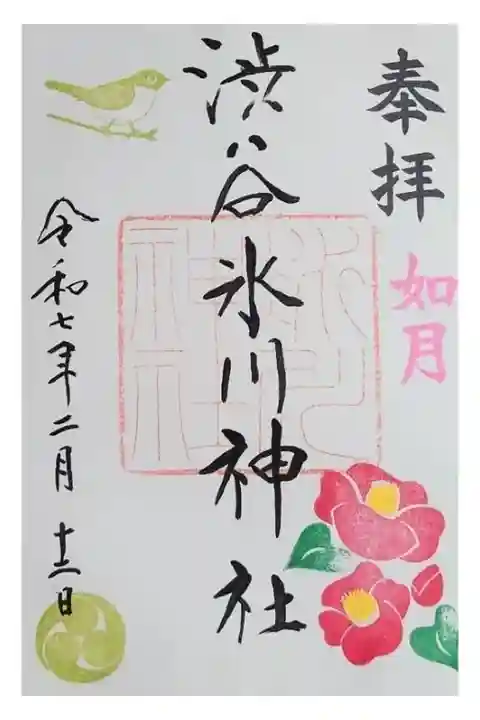 奉拝
如月
渋谷氷川神社
令和七年二月十二日